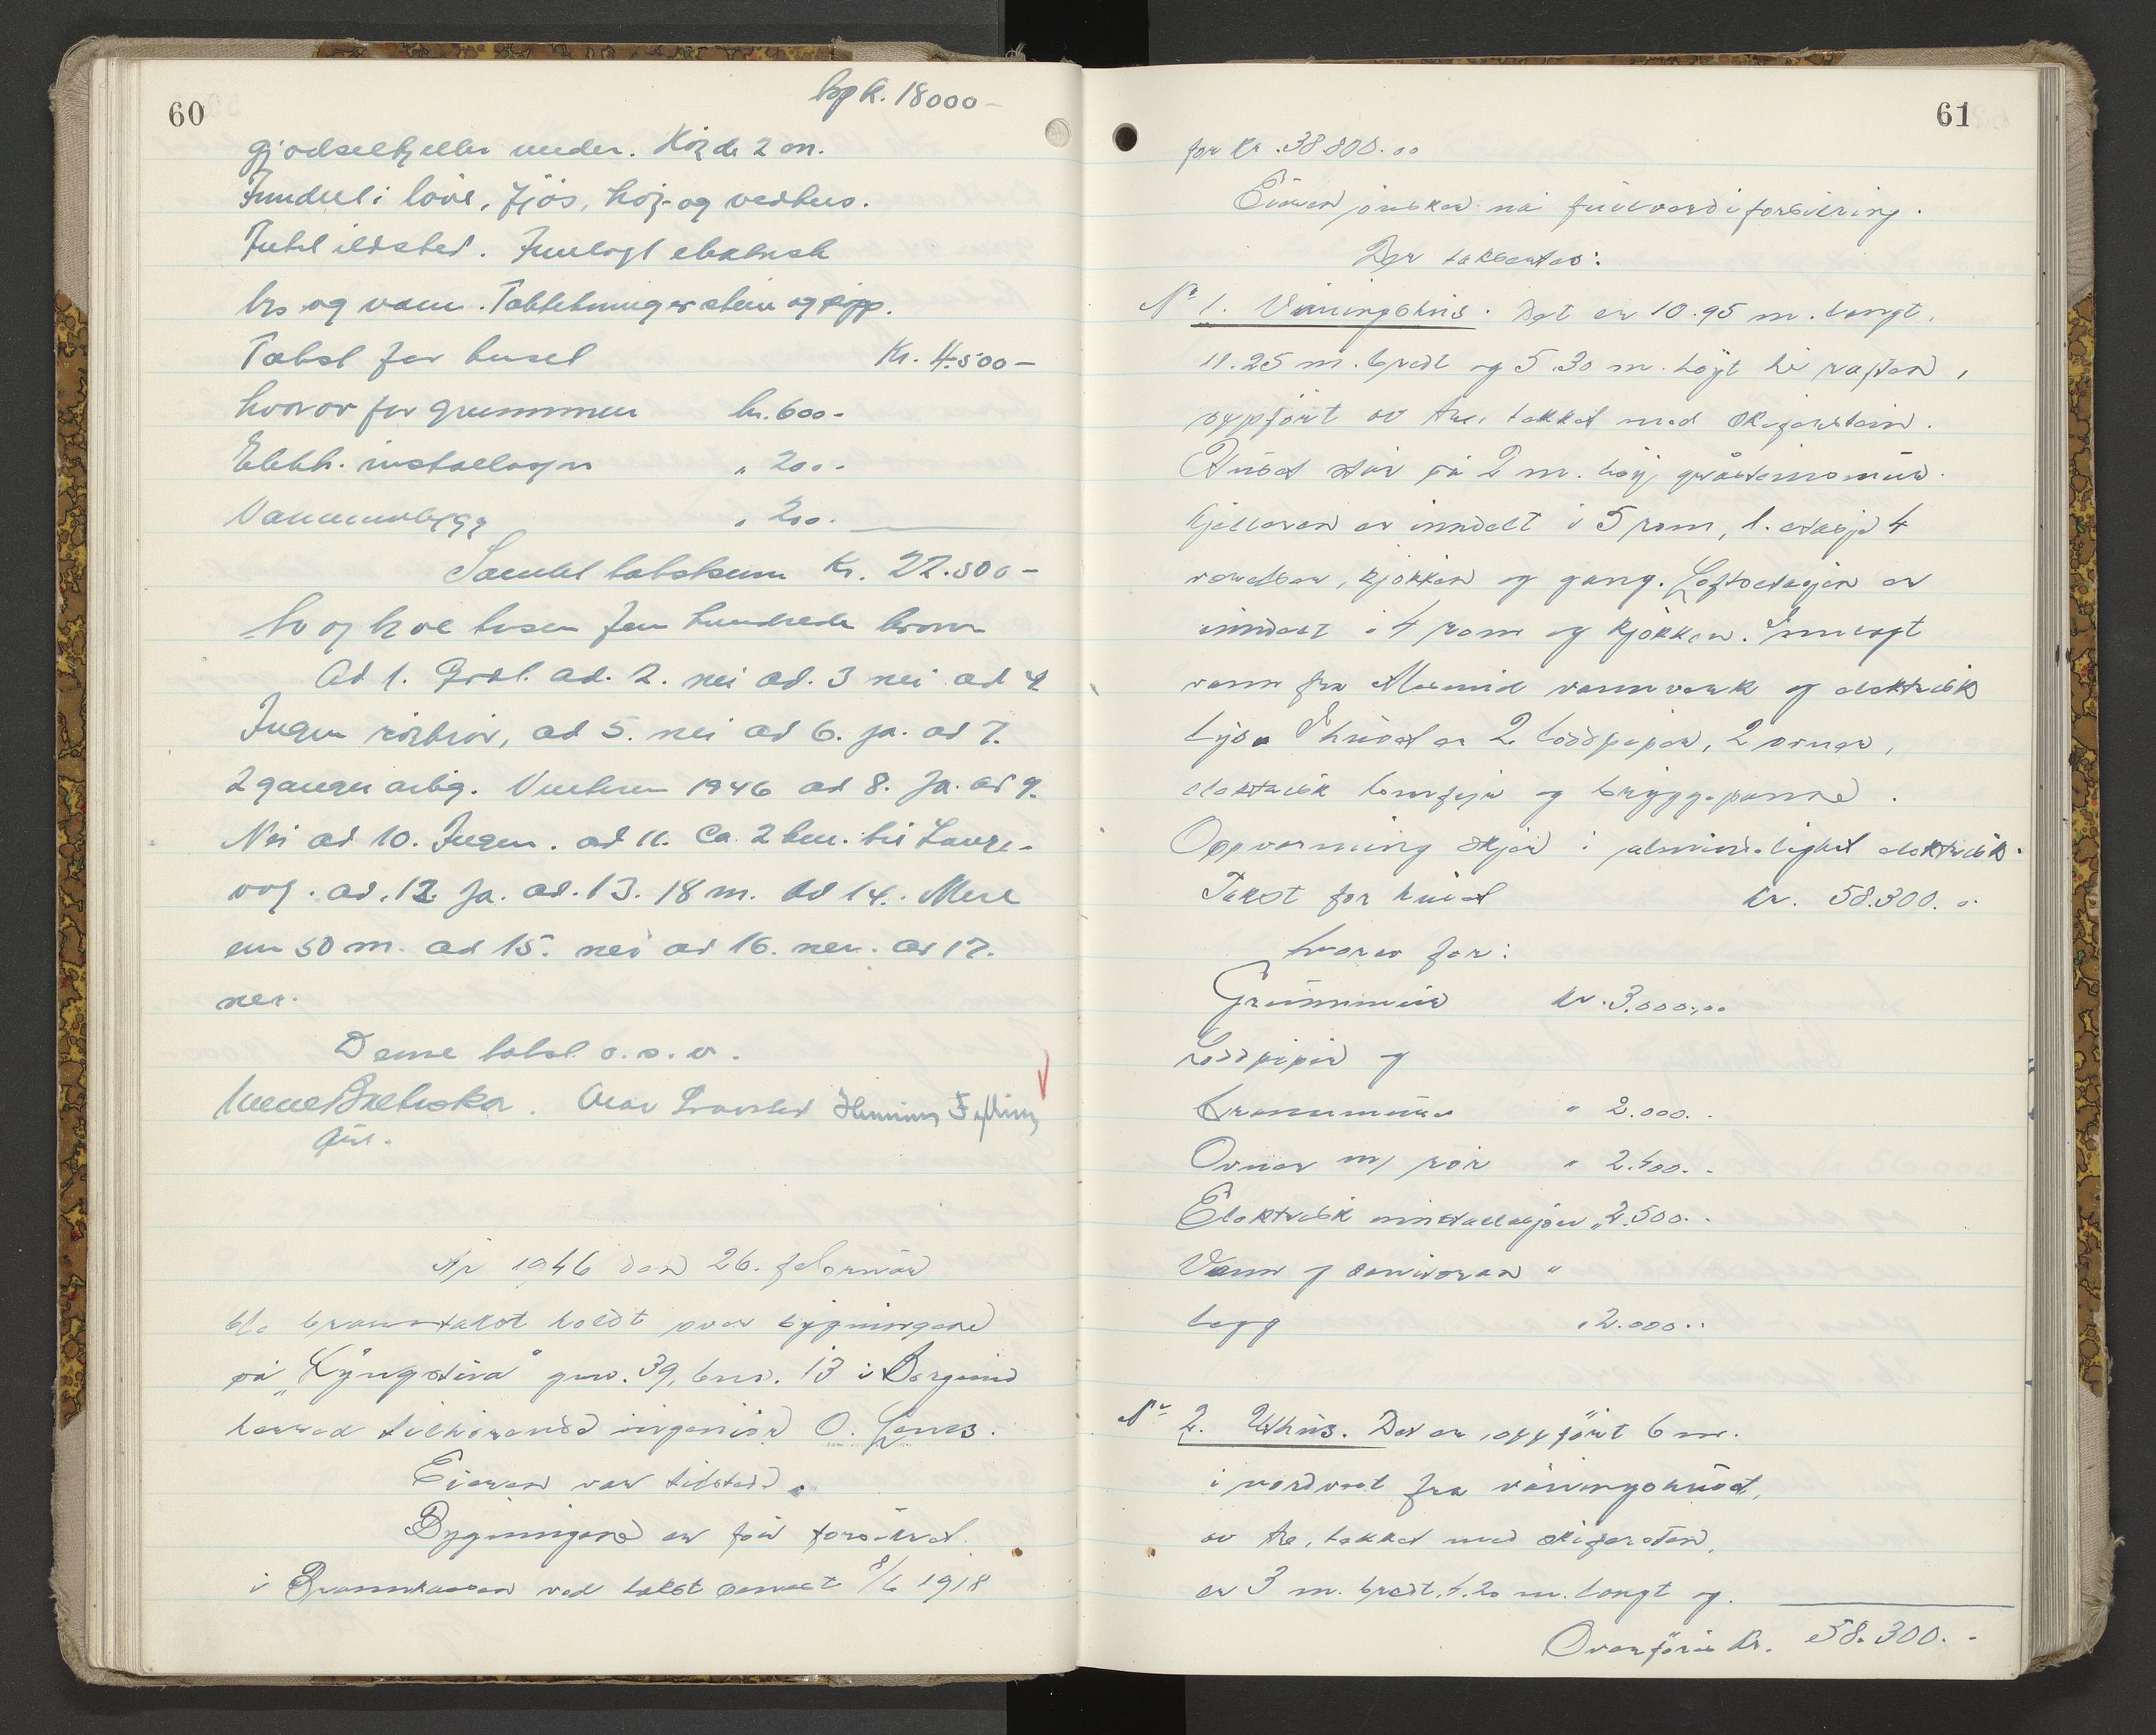 60
61
kr. 18000-
gjødselkjeller under. Høide 2 m.
Inndelt i løve, fjøs, høi- og vedhus.
Intet ildsted. Innlagt elektrisk
lys og vann. Taktekning er stein og papp.
Takst for huset Kr. 4.500-
hvorav for grunnmur kr. 600-
Elektr. installasjon " 200-
Vannanlegg " 200-
Samlet takstsum Kr. 22.500-
to og tyve tusen fem hundrede kroner
Ad 1. God. ad. 2. nei ad. 3 nei ad 4
Ingen ad 5. nei ad 6. ja. ad 7.
2 ganger årlig. 1946 ad 8. Ja. ad 9.
Nei ad 10. Ingen. ad 11. Ca. 2 km. til
ad. 12 Ja. ad. 13. 18 m. Ad 14. Mere
enn 50 m. ad 15. nei ad 16. nei. ad 17.
nei.
Denne takst o. s. v.
År 1946 den 26. februar
ble branntakst holdt over bygningene
på "Lyngstua" gnr. 39, bnr. 13 i Borgund
herred tilhørende ingeniør O.
Eieren var tilstede.
Bygningene er før forsikret
i Brannkassen ved takst 8/6 1918
for kr. 38.800.00
Eieren ønsker nå fullverdiforsikring.
Der takseres:
Nr 1. Våningshus. Det er 10.95 m. langt,
11.25 m. bredt og 5.30 m. høyt til raften,
oppført av tre, tekket med skiferstein.
Huset står på 2 m. høy gråsteinsmur.
Kjelleren er inndelt i 5 rom, 1. etasje 4
værelser, kjøkken og gang. Loftsetasjen er
inndelt i 4 rom og kjøkken. Innlagt
vann fra vannverk og elektrisk
lys. I huset er 2 loddpiper, 2 ovner,
elektrisk komfyr og bryggepanne.
Oppvarming skjer i alminnelighet elektrisk.
Takst for huset kr. 58.300.-
hvorav for:
Grunnmur kr. 3.000,00
Loddpiper og
brannmurer " 2.000.-
Ovner m/ rør " 2.400.-
Elektrisk installasjon " 2.500.-
Vann og sanitæran "
legg " 2.000.-
Nr 2. Uthus. Det er oppført 6 m.
i nordvest fra våningshuset,
av tre, tekket med skiferstein,
er 3 m. bredt, 4.20 m. langt og
Overføres kr. 58.300.-